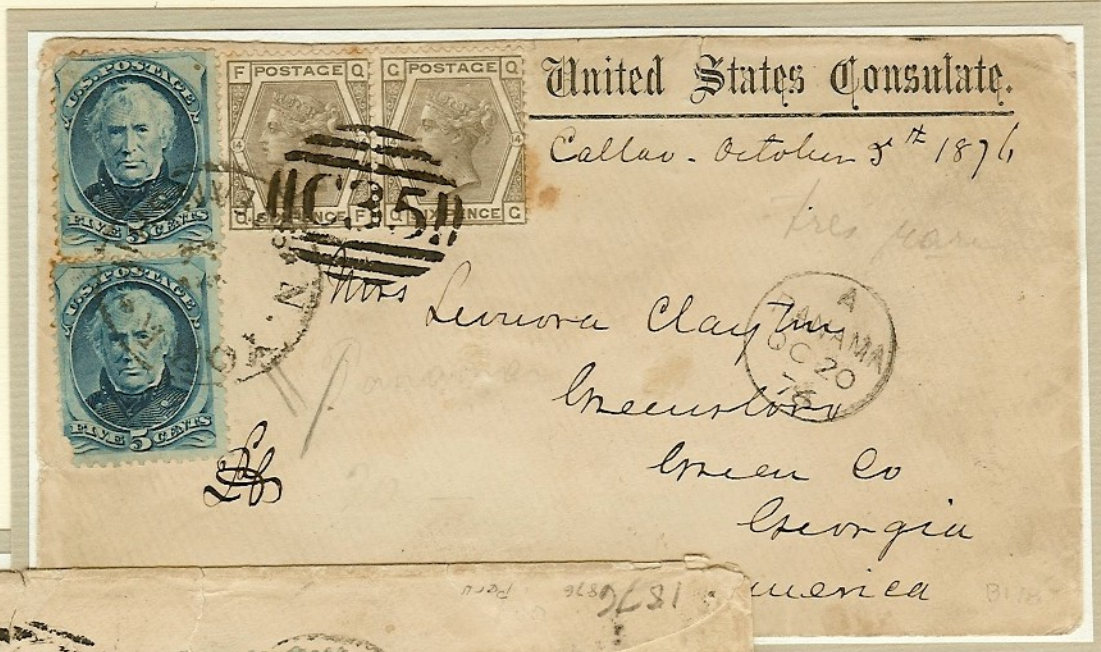 U.S. POSTAGE
FIVE 5 CENTS
U.S. POSTAGE
FIVE 5 CENTS
F POSTAGE Q
14
Q SIXPENCE F
G POSTAGE Q
14
Q SIXPENCE G
C35
United States Consulate.
Callao - October 5th 1876
très rare
Miss Leonora Clayton
Greensboro
Green Co
Georgia
America
A
PANAMA
OC 20
76
N.
Panama
B118
1876
1876
Peru